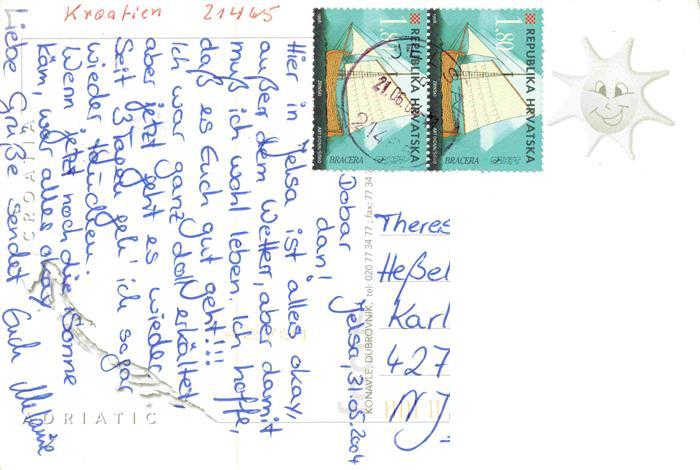 Kroatien 21465
Dobar
dan! Jelsa, 31.05.2004
Hier in Jelsa ist alles okay,
außer dem Wetter, aber damit
muß ich wohl leben. Ich hoffe,
daß es Euch gut geht!!!
Ich war ganz doll erkältet,
aber jetzt geht es wieder.
Seit 3 Tagen geh' ich sogar
wieder tauchen.
Wenn jetzt noch die Sonne
käm, wär alles okay.
Liebe Grüße sendet Euch Melanie
Theres
Heßel
Karl
427
REPUBLIKA HRVATSKA
1,80
BRACERA
REPUBLIKA HRVATSKA
1,80
BRACERA
1998
1998
ZRINSKI
ZRINSKI
214
KONAVLE, DUBROVNIK, tel: 020 77 34 77; fax: 77 34
CROATIA
ADRIATIC